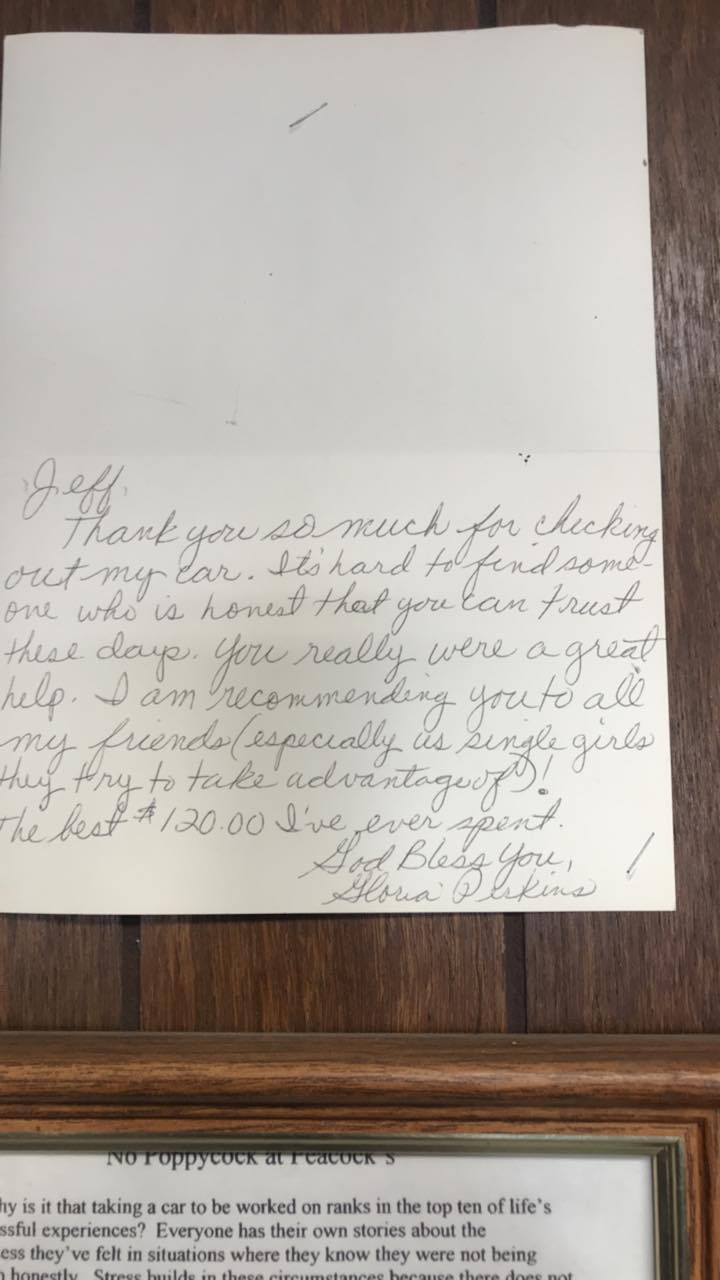 Jeff,
Thank you so much for checking
out my car. It's hard to find some-
one who is honest that you can trust
these days. You really were a great
help. I am recommending you to all
my friends (especially us single girls
they try to take advantage of)!
The best $120.00 I've ever spent.
God Bless You,
Gloria Perkins
No Poppycock at Peacock's
hy is it that taking a car to be worked on ranks in the top ten of life's
ssful experiences? Everyone has their own stories about the
ess they've felt in situations where they know they were not being
honestly. Stress builds in these circumstances because there does not